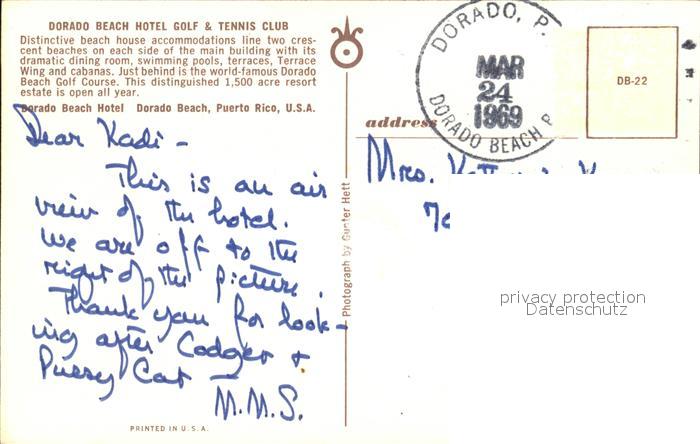 DORADO BEACH HOTEL GOLF & TENNIS CLUB
Distinctive beach house accommodations line two cres-
cent beaches on each side of the main building with its
dramatic dining room, swimming pools, terraces, Terrace
Wing and cabanas. Just behind is the world-famous Dorado
Beach Golf Course. This distinguished 1,500 acre resort
estate is open all year.
Dorado Beach Hotel Dorado Beach, Puerto Rico, U.S.A.
Dear Kadi -
This is an air
view of the hotel.
We are off to the
right of the picture.
Thank you for look-
ing after Codger +
Pussy Cat -
M.M.S.
PRINTED IN U.S.A.
Photograph by Gunter Hett
DORADO, P.
MAR
24
1969
DORADO BEACH P
DB-22
address
Mrs.
privacy protection
Datenschutz